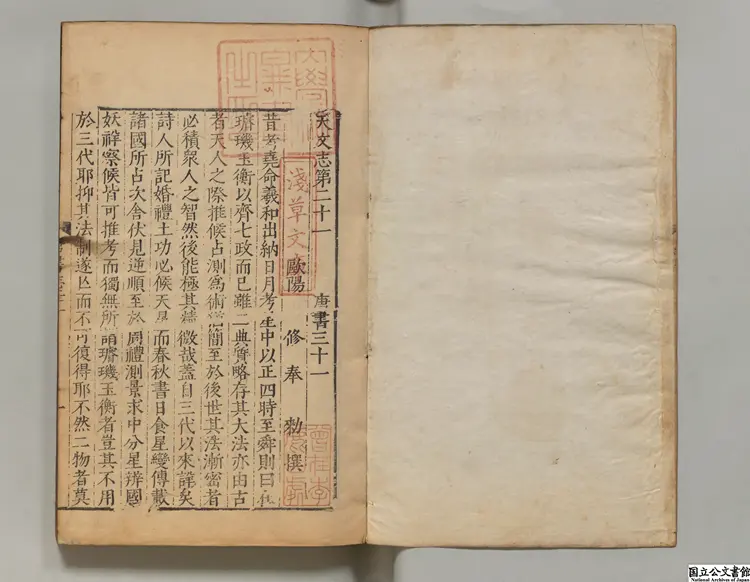 天文志第二十一 唐書三十一
歐陽 修奉 勅撰
昔者堯命羲和出納日月考星中以正四時至舜則曰在
璿璣玉衡以齊七政而已雖二典質略存其大法亦由古
者天人之際推候占測爲術猶簡至於後世其法漸密者
必積衆人之智然後能極其精微哉蓋自三代以來詳矣
詩人所記婚禮土功必候天星而春秋書日食星變傳載
諸國所占次舍伏見逆順至於周禮測景求中分星辨國
妖祥察候皆可推考而獨無所謂璿璣玉衡者豈其不用
於三代耶抑其法制遂亡而不可復得耶不然二物者莫
淺草文庫
国立公文書館
National Archives of Japan